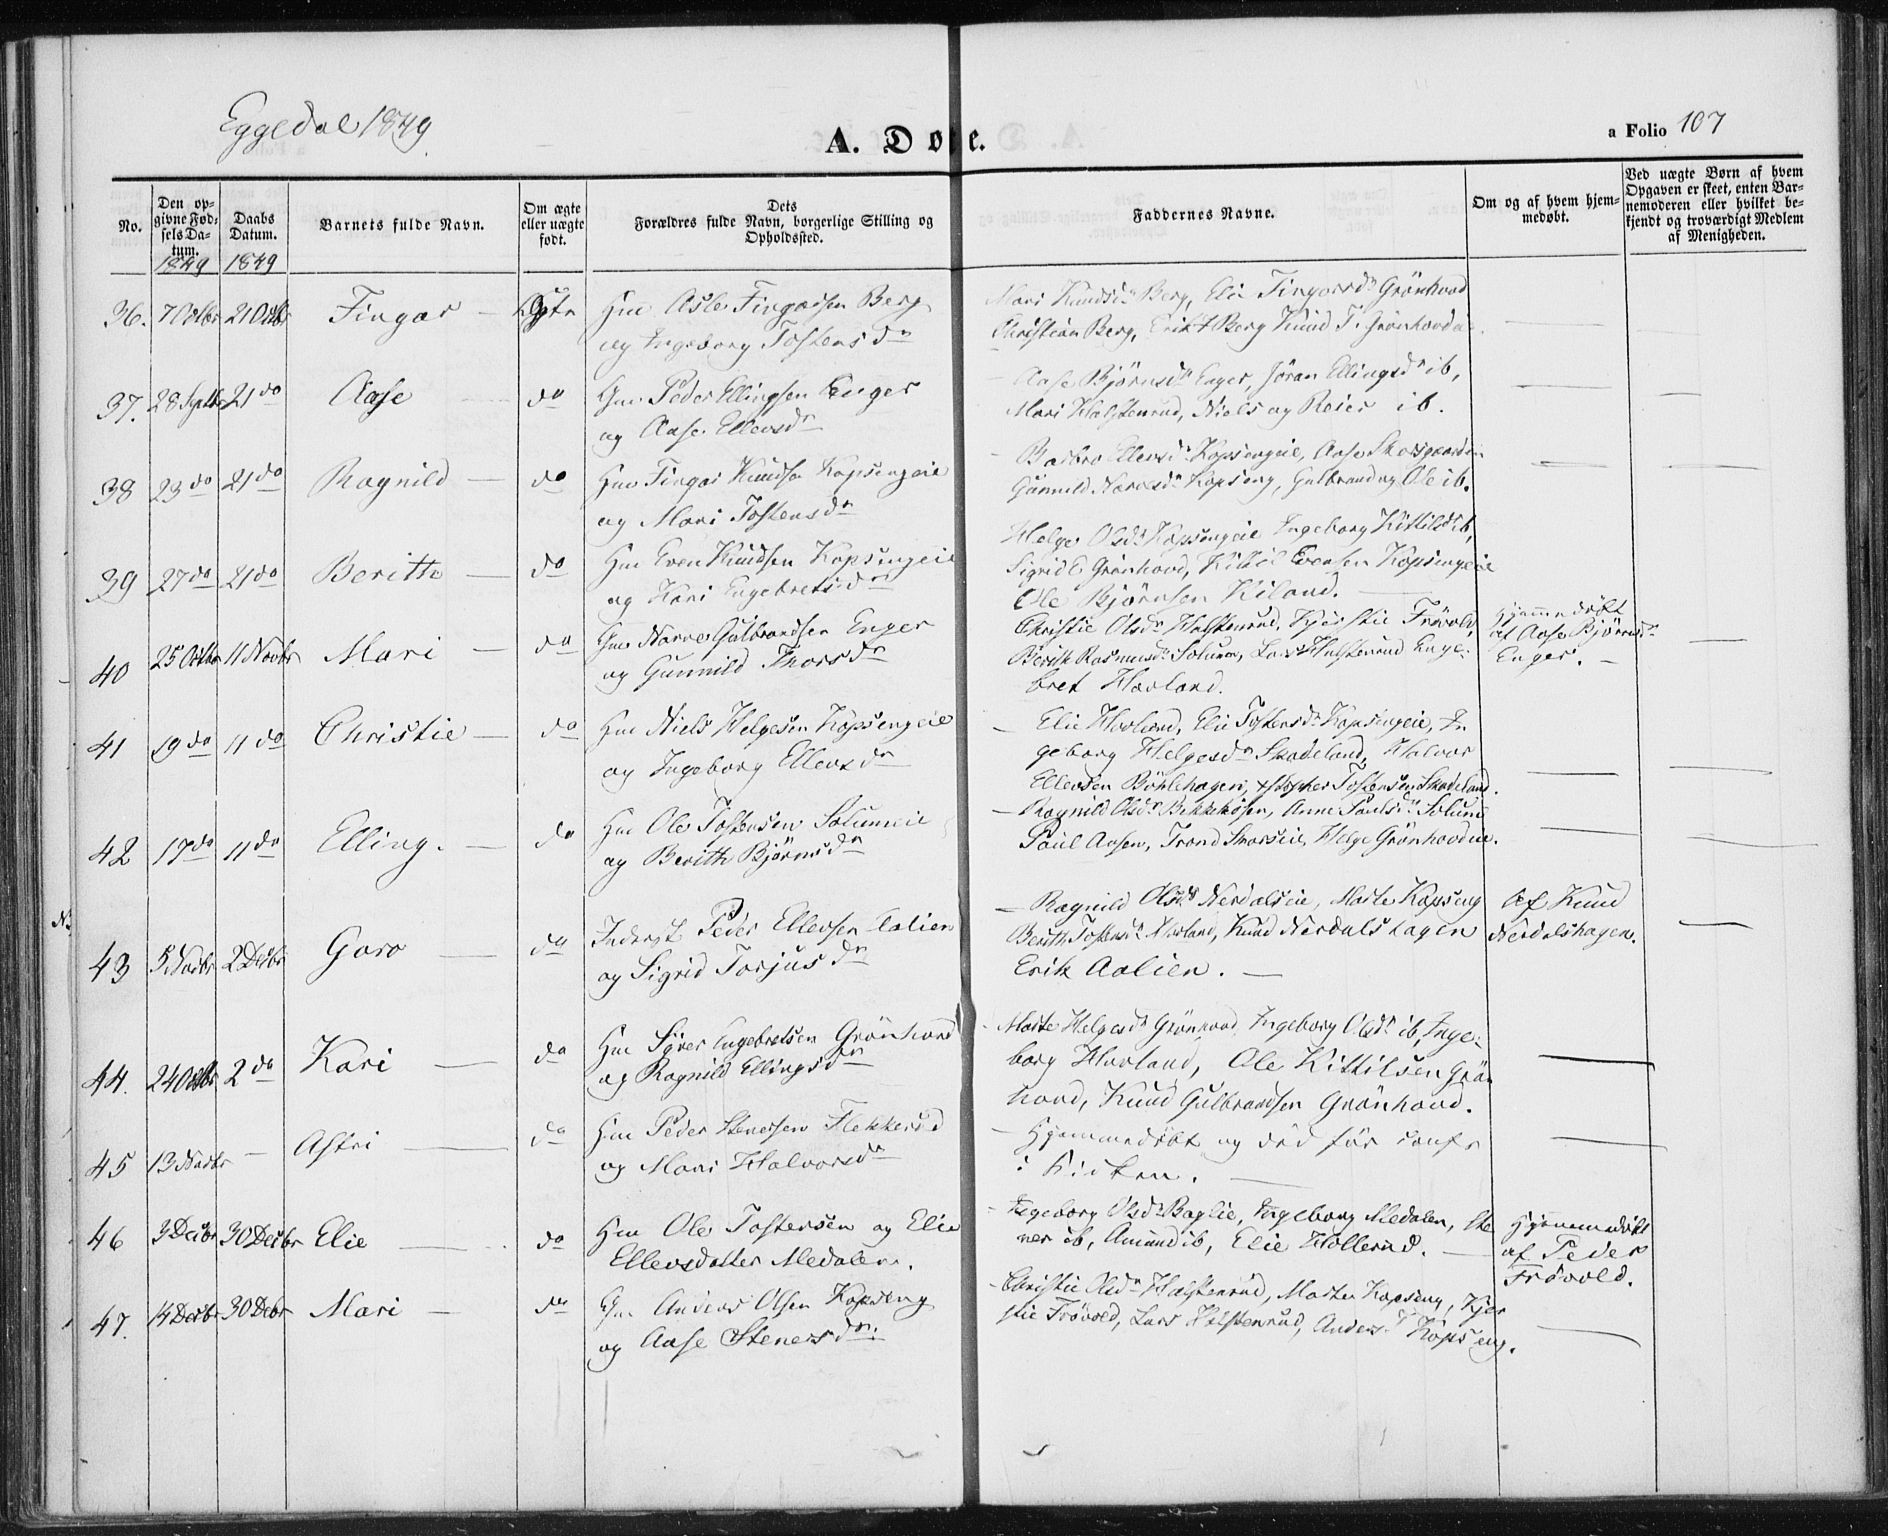 Eggedal 1849
A. Døbte.
a Folio 107
No.
Den opgivne Fødselsdatum.
1849
Daabs Datum.
1849
Barnets fulde Navn.
Om ægte eller uægte født.
Dets Forældres fulde Navn, borgerlige Stilling og Opholdssted.
Faddernes Navne.
Om og af hvem hjemmedøbt.
Ved uægte Børn af hvem Opgaven er skeet, enten Barnemoderen eller hvilket bekjendt og troværdigt Medlem af Menigheden.
36. 7 Octbr 21 Octbr Fingar Ægte Hm Asle Fingarsen Berg
og Ingeborg Tostensdr
Mari Knudsdr Berg, Elie Fingarsdr Grönhovd
Christian Berg, Erik Berg Knud T. Grönhovd
37. 28 Septbr 21 do Aase do Gm Peder Ellingsen Enger
og Aase Ellevsdr
Aase Bjørnsdr Enger, Jöran Ellingsdr ib,
Mari Halstenrud, Niels og Reier ib.
38 23 do 21 do Ragnild do Hm Fingar Knudsen Kopsengeie
og Mari Tostensdr
Barbro Ellevsdr Kopsengeie, Aase
Gunnild Narvesdr Kopseng, Gulbrand og Ole ib.
39 27 do 21 do Berithe do Hm Even Knudsen Kopsengeie
og Kari Engebretsdr
Helge Olsdr Kopsengeie Ingeborg Kittilsdr ib,
Sigrid E Grönhovd, Kittil Evensen Kopsengeie
Ole Bjørnsen Kiland.
40 25 Octbr 11 Novbr Mari do Gm Narve Gulbrandsen Enger
og Gunnild Thorsdr
Christie Olsdr Halstenrud, Kjerstie Frövold,
Berith Rasmusdr Solumm, Lars Halstenrud Enge-
bret Hovland.
Hjemmedöbt
af Aase Bjørnsdr
Enger.
41 19 do 11 do Christie do Hm Niels Helgesen Kopsengeie
og Ingeborg Ellevsdr
Elie Hovland, Elie Tostensdr Kopsengeie, In
geborg Helgesdr Skadeland, Halvor
Ellevsen Böhlehagen, Tostensen Skadeland.
42 17 do 11 do Elling. do Hm Ole Tostensen Solumeie
og Berith Bjørnsdr
Ragnild Olsdr Anne Paulsdr Solum
Paul Aasen, Trond Helge Grönhovd
43 5 Novbr 2 Decbr Goro do Inderst Peder Ellevsen Aalien
og Sigrid Torjusdr
Ragnild Olsdr Nerdalseie, Marte Kopseng
Berith Tostensdr Hovland, Knud Nerdalshagen
Erik Aalien.
Af Knud
Nerdalshagen.
44. 24 Octbr 2 do Kari do Hm Syver Engebretsen Grönhovd
og Ragnild Ellingsdr
Marte Helgesdr Grönhovd, Ingeborg Olsdr ib, Inge-
borg Hovland, Ole Kittilsen Grön
hovd, Knud Gulbrandsen Grönhovd.
45 13 Novbr Astri do Hm Peder Stenersen Flekkerud
og Mari Halvorsdr
Hjemmedöbt og död för confr
i Kirken.
46 3 Decbr 30 Decbr Elie do Hm Ole Tostensen og Elie
Ellevsdatter Medalen.
Ingeborg Olsdr Baglie, Ingeborg Medalen, Ste
ner ib, Amund ib, Elie Hollerud.
Hjemmedöbt
af Peder
Frövold.
47. 14 Decbr 30 Decbr Mari do Gm Anders Olsen Kopseng
og Aase Stenersdr.
Christie Olsdr Halstenrud, Marte Kopseng, Kjer
stie Frövold, Lars Halstenrud, Anders Kopseng.